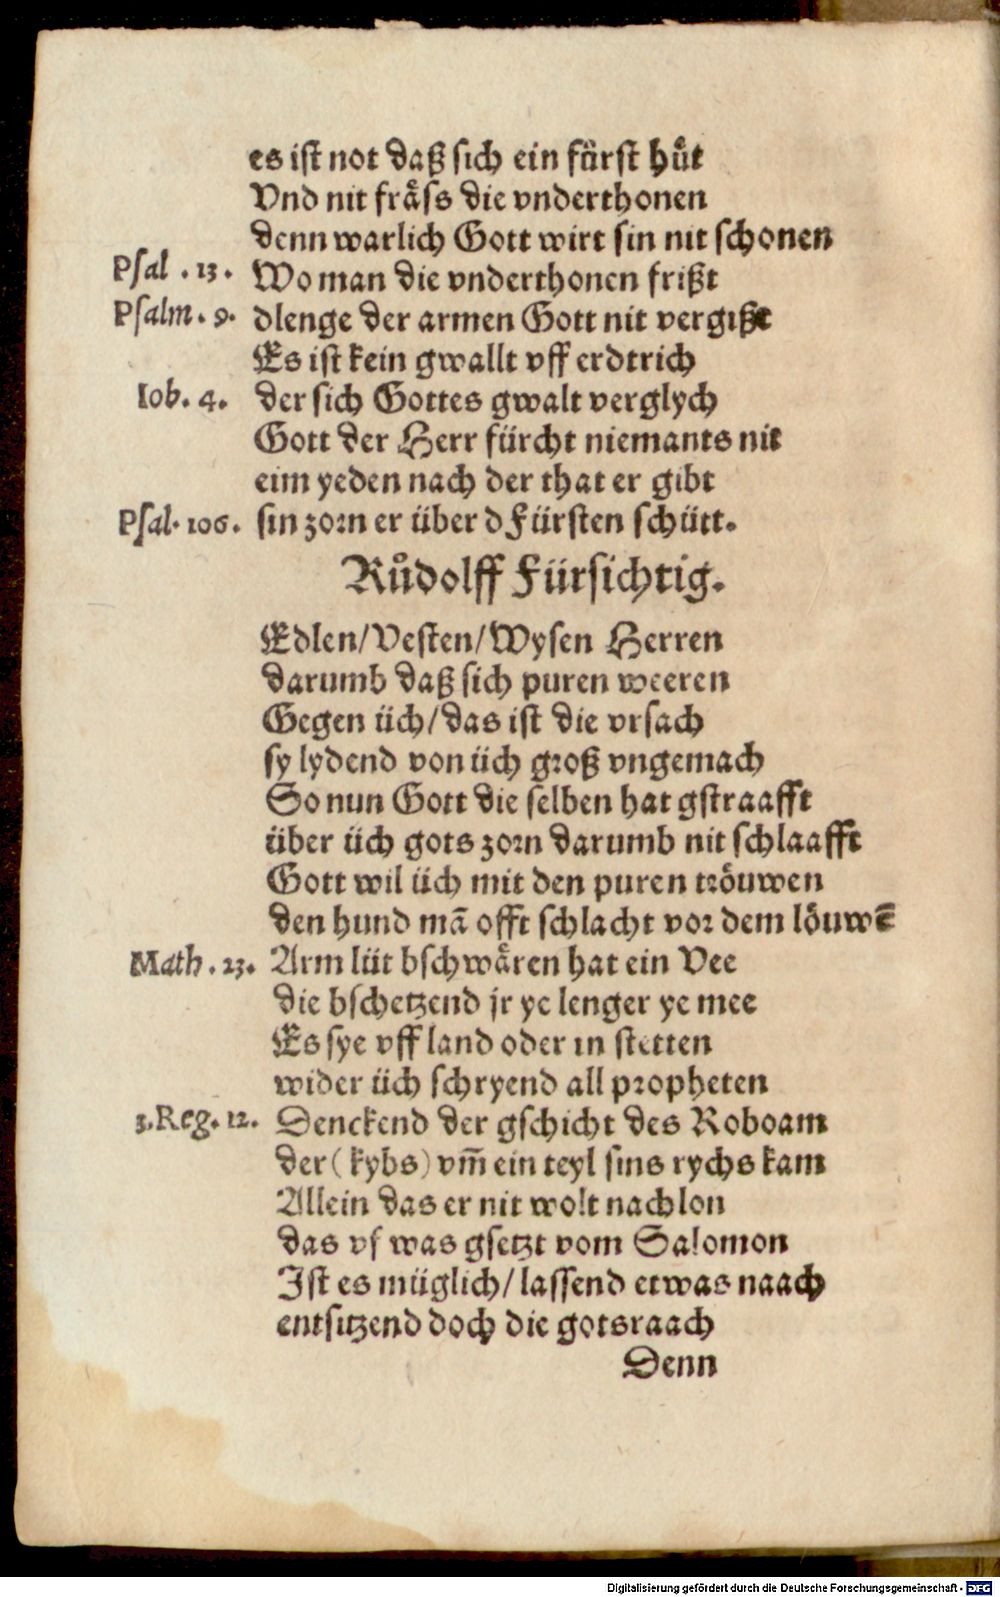 es ist not daß sich ein fürst huͤt
Vnd nit fraͤss die vnderthonen
denn warlich Gott wirt sin nit schonen
Psal .13. Wo man die vnderthonen frißt
Psalm. 9. dlenge der armen Gott nit vergißt
Es ist kein gwallt vff erdtrich
Iob. 4. der sich Gottes gwalt verglych
Gott der Herr fürcht niemants nit
eim yeden nach der that er gibt
Psal. 106. sin zorn er über d Fürsten schütt.
Ruͦdolff Fürsichtig.
Edlen/Vesten/Wysen Herren
darumb daß sich puren weeren
Gegen üch/das ist die vrsach
sy lydend von üch groß vngemach
So nun Gott die selben hat gstraafft
über üch gots zorn darumb nit schlaafft
Gott wil üch mit den puren tröuwen
den hund mā offt schlacht vor dem löuwē
Math. 23. Arm lüt bschwaͤren hat ein Vee
die bschetzend jr ye lenger ye mee
Es sye vff land oder in stetten
wider üch schryend all propheten
3.Reg. 12. Denckend der gschicht des Roboam
der (kybs) vm̄ ein teyl sins rychs kam
Allein das er nit wolt nachlon
das vf was gsetzt vom Salomon
Ist es müglich/lassend etwas naach
entsitzend doch die gotsraach
Denn
Digitalisierung gefördert durch die Deutsche Forschungsgemeinschaft - DFG